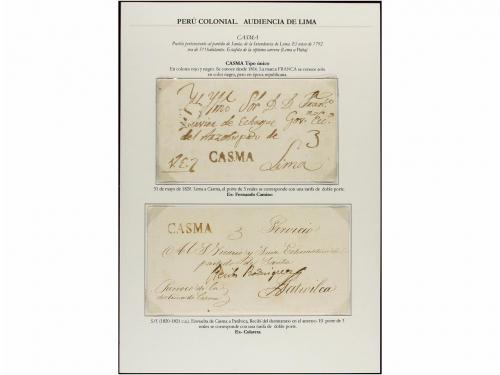 PERÚ COLONIAL. AUDIENCIA DE LIMA
CASMA
Pueblo perteneciente al partido de Santa, de la Intendencia de Lima. El censo de 1792
era de 371 habitantes. Estafeta de la séptima carrera (Lima a Piura)
CASMA Tipo único
En colores rojo y negro. Se conoce desde 1804. La marca FRANCA se conoce solo
en color negro, pero en época republicana.
Sor. D. D.
de Echague Gov.
del Arzobispado de 3
CASMA
Lima
31 de mayo de 1820. Lima a Casma, el porte de 3 reales se corresponde con una tarifa de doble porte.
Ex- Fernando Camino
CASMA 3 Servicio
Al S. Vicario y Juez
partido de Santa
Recibí Rodriguez
doctrina de Casma
Pativilca
S/f. (1820-1821 c.a.). Envuelta de Casma a Pativilca, Recibí del destinatario en el anverso. El porte de 3
reales se corresponde con una tarifa de doble porte.
Ex- Colareta